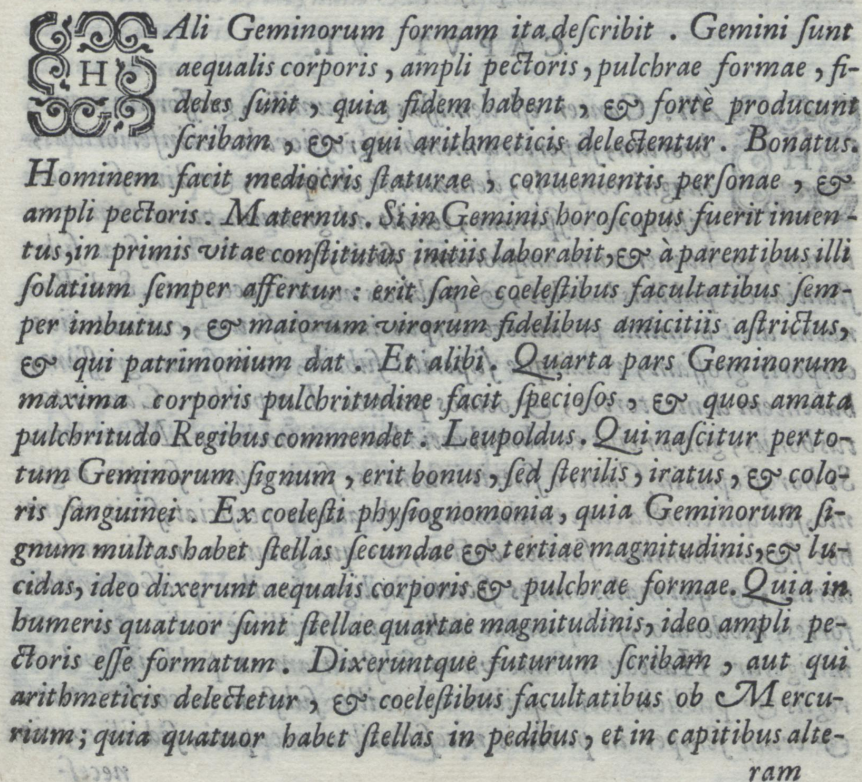 HAli Geminorum formam ita deſcribit . Gemini ſunt
aequalis corporis , ampli pectoris , pulchrae formae , fi-
deles ſunt , quia fidem habent , & fortè producunt
ſcribam , & qui arithmeticis delectentur . Bonatus.
Hominem facit mediocris ſtaturae , conuenientis perſonae , &
ampli pectoris . Maternus . Si in Geminis horoſcopus fuerit inuen-
tus, in primis vitae conſtitutus initiis laborabit, & à parentibus illi
ſolatium ſemper affertur : erit ſanè coeleſtibus facultatibus ſem-
per imbutus , & maiorum virorum fidelibus amicitiis aſtrictus,
& qui patrimonium dat . Et alibi . Quarta pars Geminorum
maxima corporis pulchritudine facit ſpecioſos , & quos amata
pulchritudo Regibus commendet . Leupoldus . Qui naſcitur per to-
tum Geminorum ſignum , erit bonus , ſed ſterilis , iratus , & colo-
ris ſanguinei . Ex coeleſti phyſiognomonia , quia Geminorum ſi-
gnum multas habet ſtellas ſecundae & tertiae magnitudinis, & lu-
cidas, ideo dixerunt aequalis corporis & pulchrae formae. Quia in
humeris quatuor ſunt ſtellae quartae magnitudinis, ideo ampli pe-
ctoris eſſe formatum . Dixeruntque futurum ſcribam , aut qui
arithmeticis delectetur , & coeleſtibus facultatibus ob Mercu-
rium ; quia quatuor habet ſtellas in pedibus , et in capitibus alte-
ram